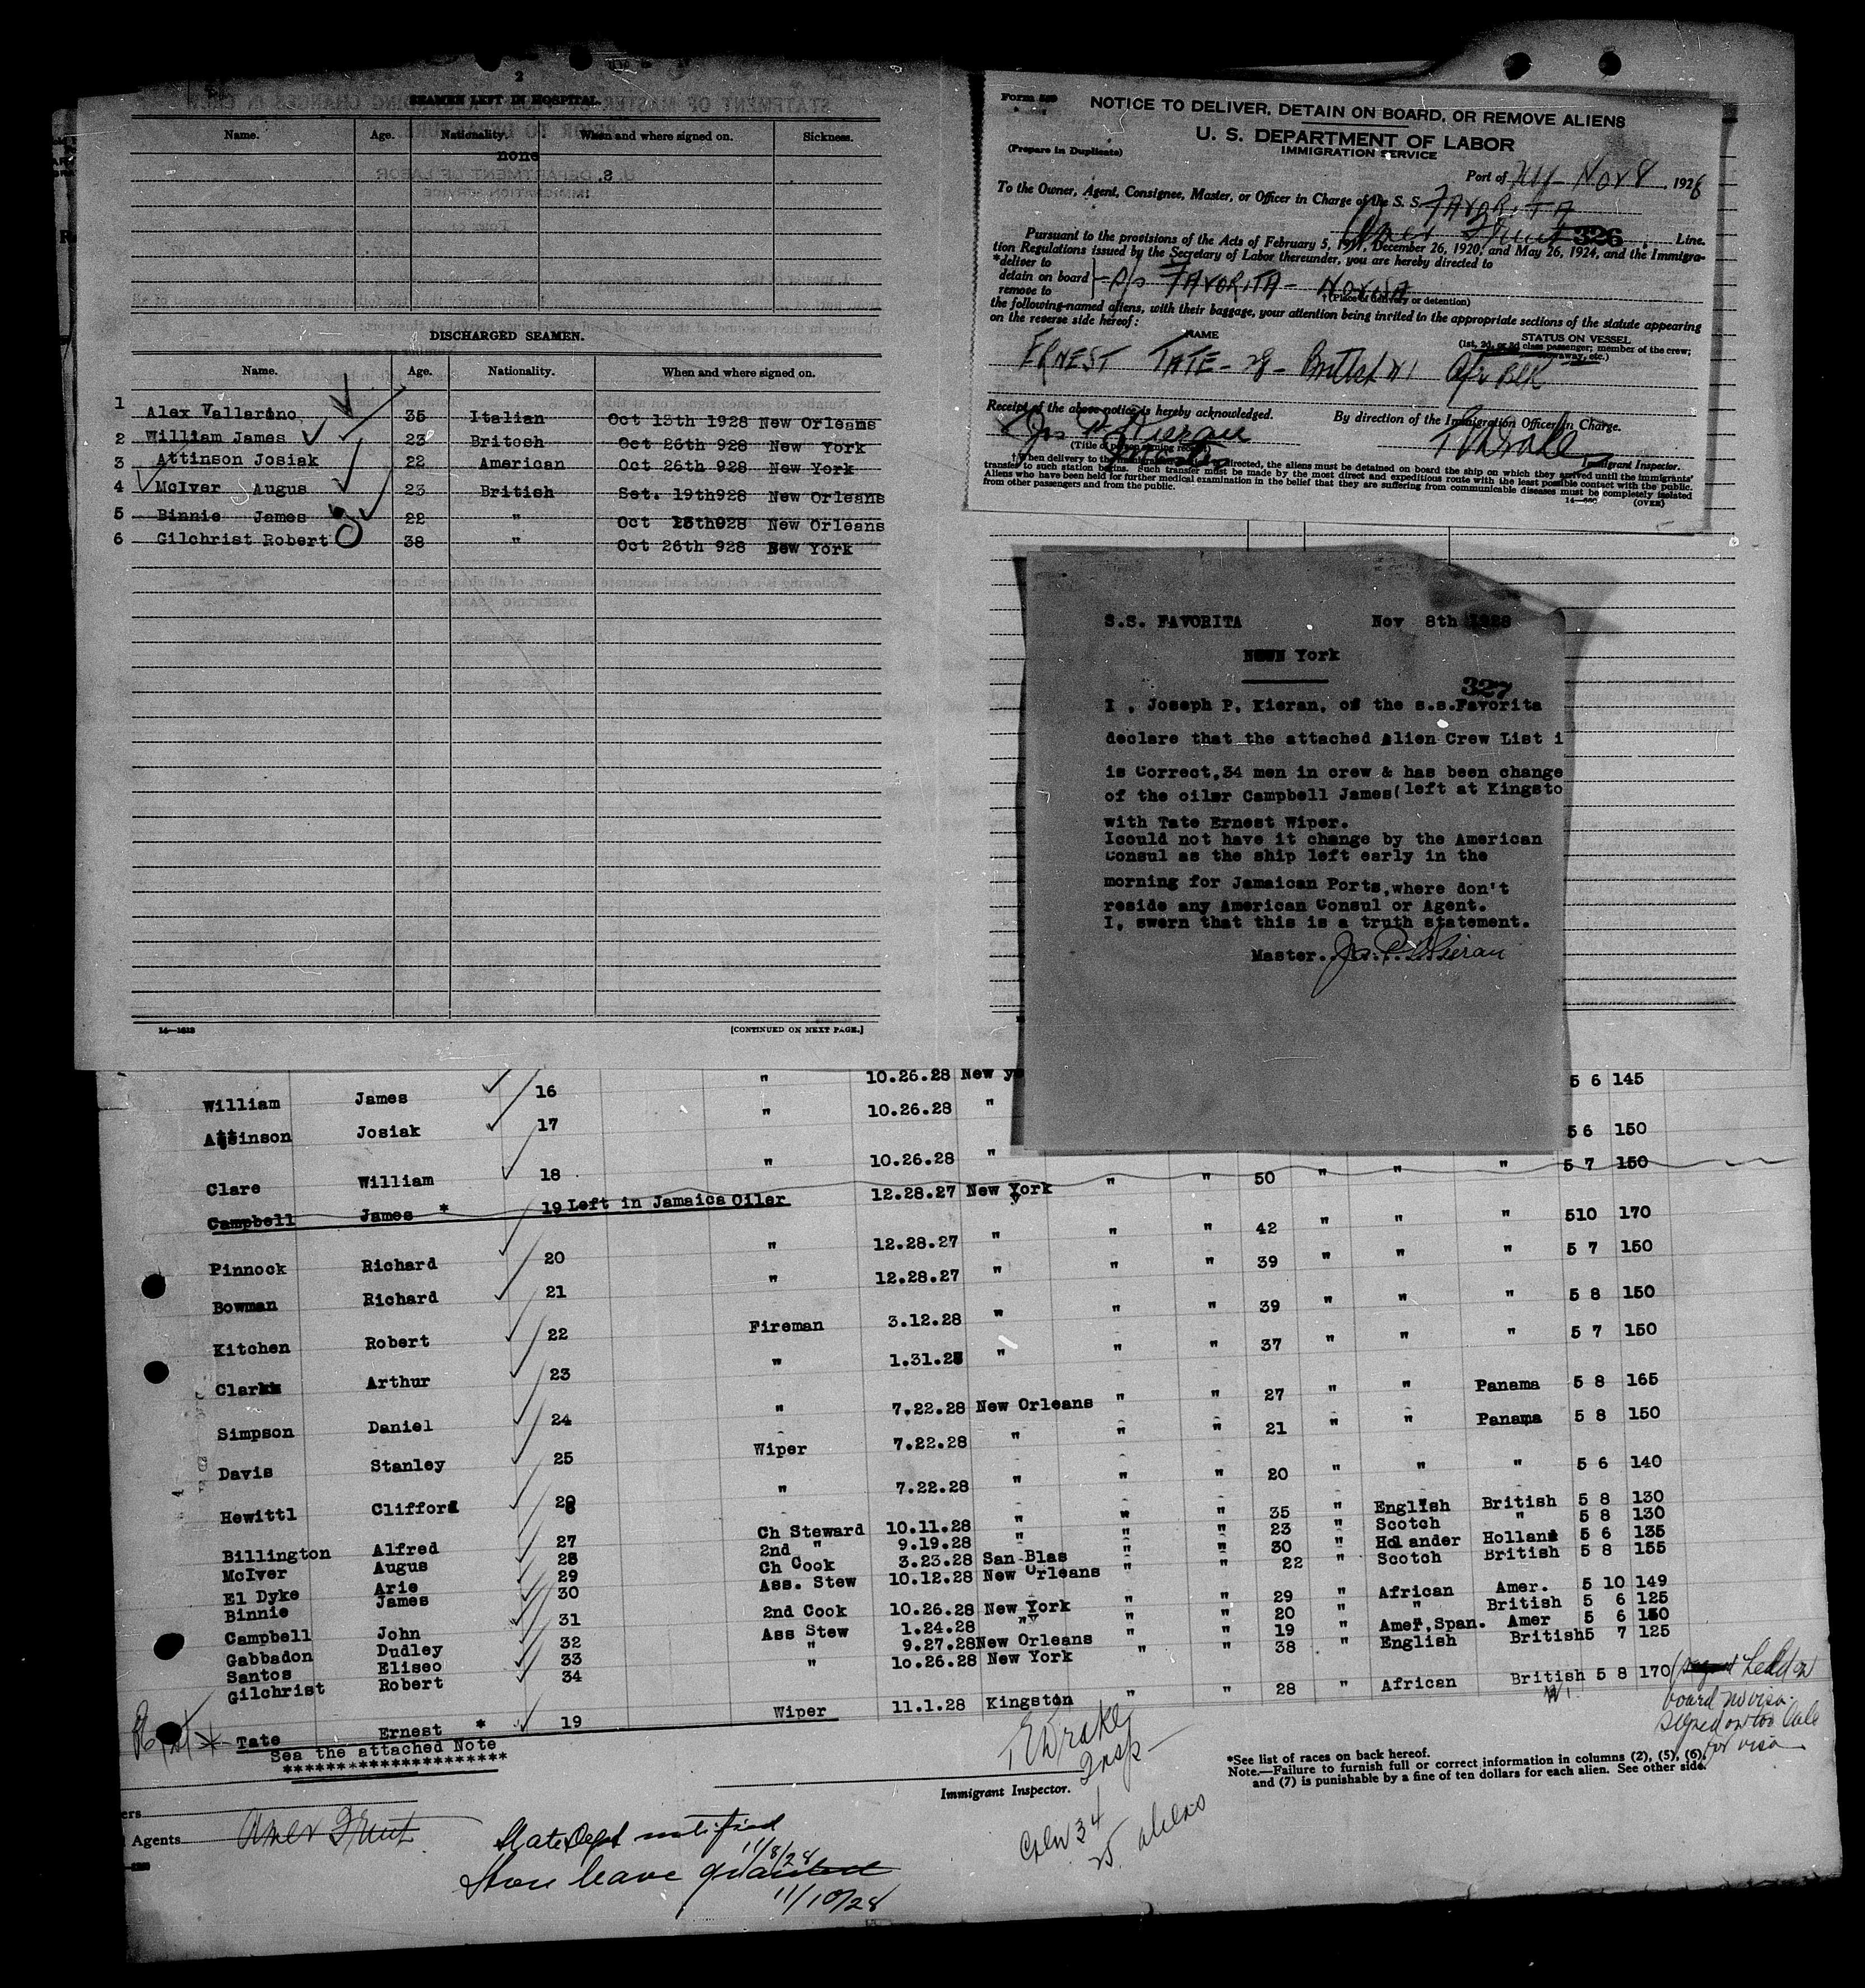 2
SEAMEN LEFT IN HOSPITAL.
Name. Age. Nationality. When and where signed on. Sickness.
none
DISCHARGED SEAMEN.
Name. Age. Nationality. When and where signed on.
1 Alex Vallarino 35 Italian Oct 13th 1928 New Orleans
2 William James 23 Britosh Oct 26th 928 New York
3 Attinson Josiak 22 American Oct 26th 928 New York
4 McIver Augus 23 British Set. 19th928 New Orleans
5 Binnie James 22 " Oct 13th928 New Orleans
6 Gilchrist Robert 38 " Oct 26th 928 New York
14—1618 [CONTINUED ON NEXT PAGE.]
Form
NOTICE TO DELIVER, DETAIN ON BOARD, OR REMOVE ALIENS
U. S. DEPARTMENT OF LABOR
IMMIGRATION SERVICE
(Prepare in Duplicate)
Port of NY Nov 8, 1928
To the Owner, Agent, Consignee, Master, or Officer in Charge of the S. S. FAVORITA
Amer Fruit 326 Line.
Pursuant to the provisions of the Acts of February 5, 1917, December 26, 1920, and May 26, 1924, and the Immigra-
tion Regulations issued by the Secretary of Labor thereunder, you are hereby directed to
*deliver to
detain on board S/S FAVORITA -
remove to
†(Place of delivery or detention)
the following-named aliens, with their baggage, your attention being invited to the appropriate sections of the statute appearing
on the reverse side hereof:
NAME STATUS ON VESSEL
(1st, 2d, or 3d class passenger; member of the crew;
stowaway, etc.)
ERNEST TATE - 28 - British WI Afr Blk
Receipt of the above notice is hereby acknowledged. By direction of the Immigration Officer in Charge.
Jos P Kieran T W Drake
(Title of person signing receipt) Immigrant Inspector.
†When delivery to the immigration station is directed, the aliens must be detained on board the ship on which they arrived until the immigrants'
transfer to such station begins. Such transfer must be made by the most direct and expeditious route with the least possible contact with the public.
Aliens who have been held for further medical examination in the belief that they are suffering from communicable diseases must be completely isolated
from other passengers and from the public.
(OVER)
S.S. FAVORITA Nov 8th 1928
New York
327
I , Joseph P. Kieran, of the s.s.Favorita
declare that the attached Alien Crew List i
is Correct,34 men in crew & has been change
of the oiler Campbell James(left at Kingsto
with Tate Ernest Wiper.
Icould not have it change by the American
Consul as the ship left early in the
morning for Jamaican Ports,where don't
reside any American Consul or Agent.
I, swern that this is a truth statement.
Master. Jos. P. Kieran
William James 16 " 10.26.28 New y 5 6 145
Attinson Josiak 17 " 10.26.28 " 5 6 150
Clare William 18 " 10.26.28 " " " 50 " " " 5 7 150
Campbell James * 19 Left in Jamaica Oiler 12.28.27 New York " " 42 " " " 510 170
Pinnock Richard 20 " 12.28.27 " " " 39 " " " 5 7 150
Bowman Richard 21 " 12.28.27 " " " 39 " " " 5 8 150
Kitchen Robert 22 Fireman 3.12.28 " " " 37 " " " 5 7 150
Clark Arthur 23 " 1.31.28 " " " 27 " " Panama 5 8 165
Simpson Daniel 24 " 7.22.28 New Orleans " " 21 " " Panama 5 8 150
Davis Stanley 25 Wiper 7.22.28 " " " 20 " " " 5 6 140
Hewittl Clifford 26 " 7.22.28 " " " 35 " English British 5 8 130
Billington Alfred 27 Ch Steward 10.11.28 " " " 23 " Scotch " 5 8 130
McIver Augus 28 2nd " 9.19.28 " " " 30 " Holander Holland 5 6 135
El Dyke Arie 29 Ch Cook 3.23.28 San Blas " " 22 " Scotch British 5 8 155
Binnie James 30 Ass. Stew 10.12.28 New Orleans " "
Campbell John 31 2nd Cook 10.26.28 New York " " 29 " African Amer. 5 10 149
Gabbadon Dudley 32 Ass Stew 1.24.28 " " " 20 " " British 5 6 125
Santos Eliseo 33 " 9.27.28 New Orleans " " 19 " Amer,Span. Amer 5 6 130
Gilchrist Robert 34 " 10.26.28 New York " " 38 " English British5 7 125
Tate Ernest * 19 Wiper 11.1.28 Kingston " " 28 " African British 5 8 170
W I
held on
board no visa.
Signed on too late
for visa
Sea the attached Note
******************
T W Drake
Insp
Immigrant Inspector.
*See list of races on back hereof.
Note.—Failure to furnish full or correct information in columns (2), (5), (6),
and (7) is punishable by a fine of ten dollars for each alien. See other side.
ers
Agents Amer Fruit
State Dept notified
11/8/28
Shore leave granted
11/10/28
Crew 34
25 aliens